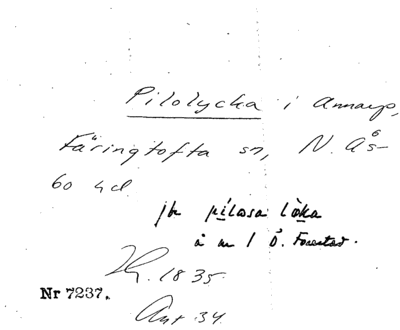 Pilolycka i Annarp,
Färingtofta sn, N. Ås-
bo hd
jfr pilasa lòka
å nr 1 Ö. Forestad.
1835.
Nr 7237.
Ant. 34.